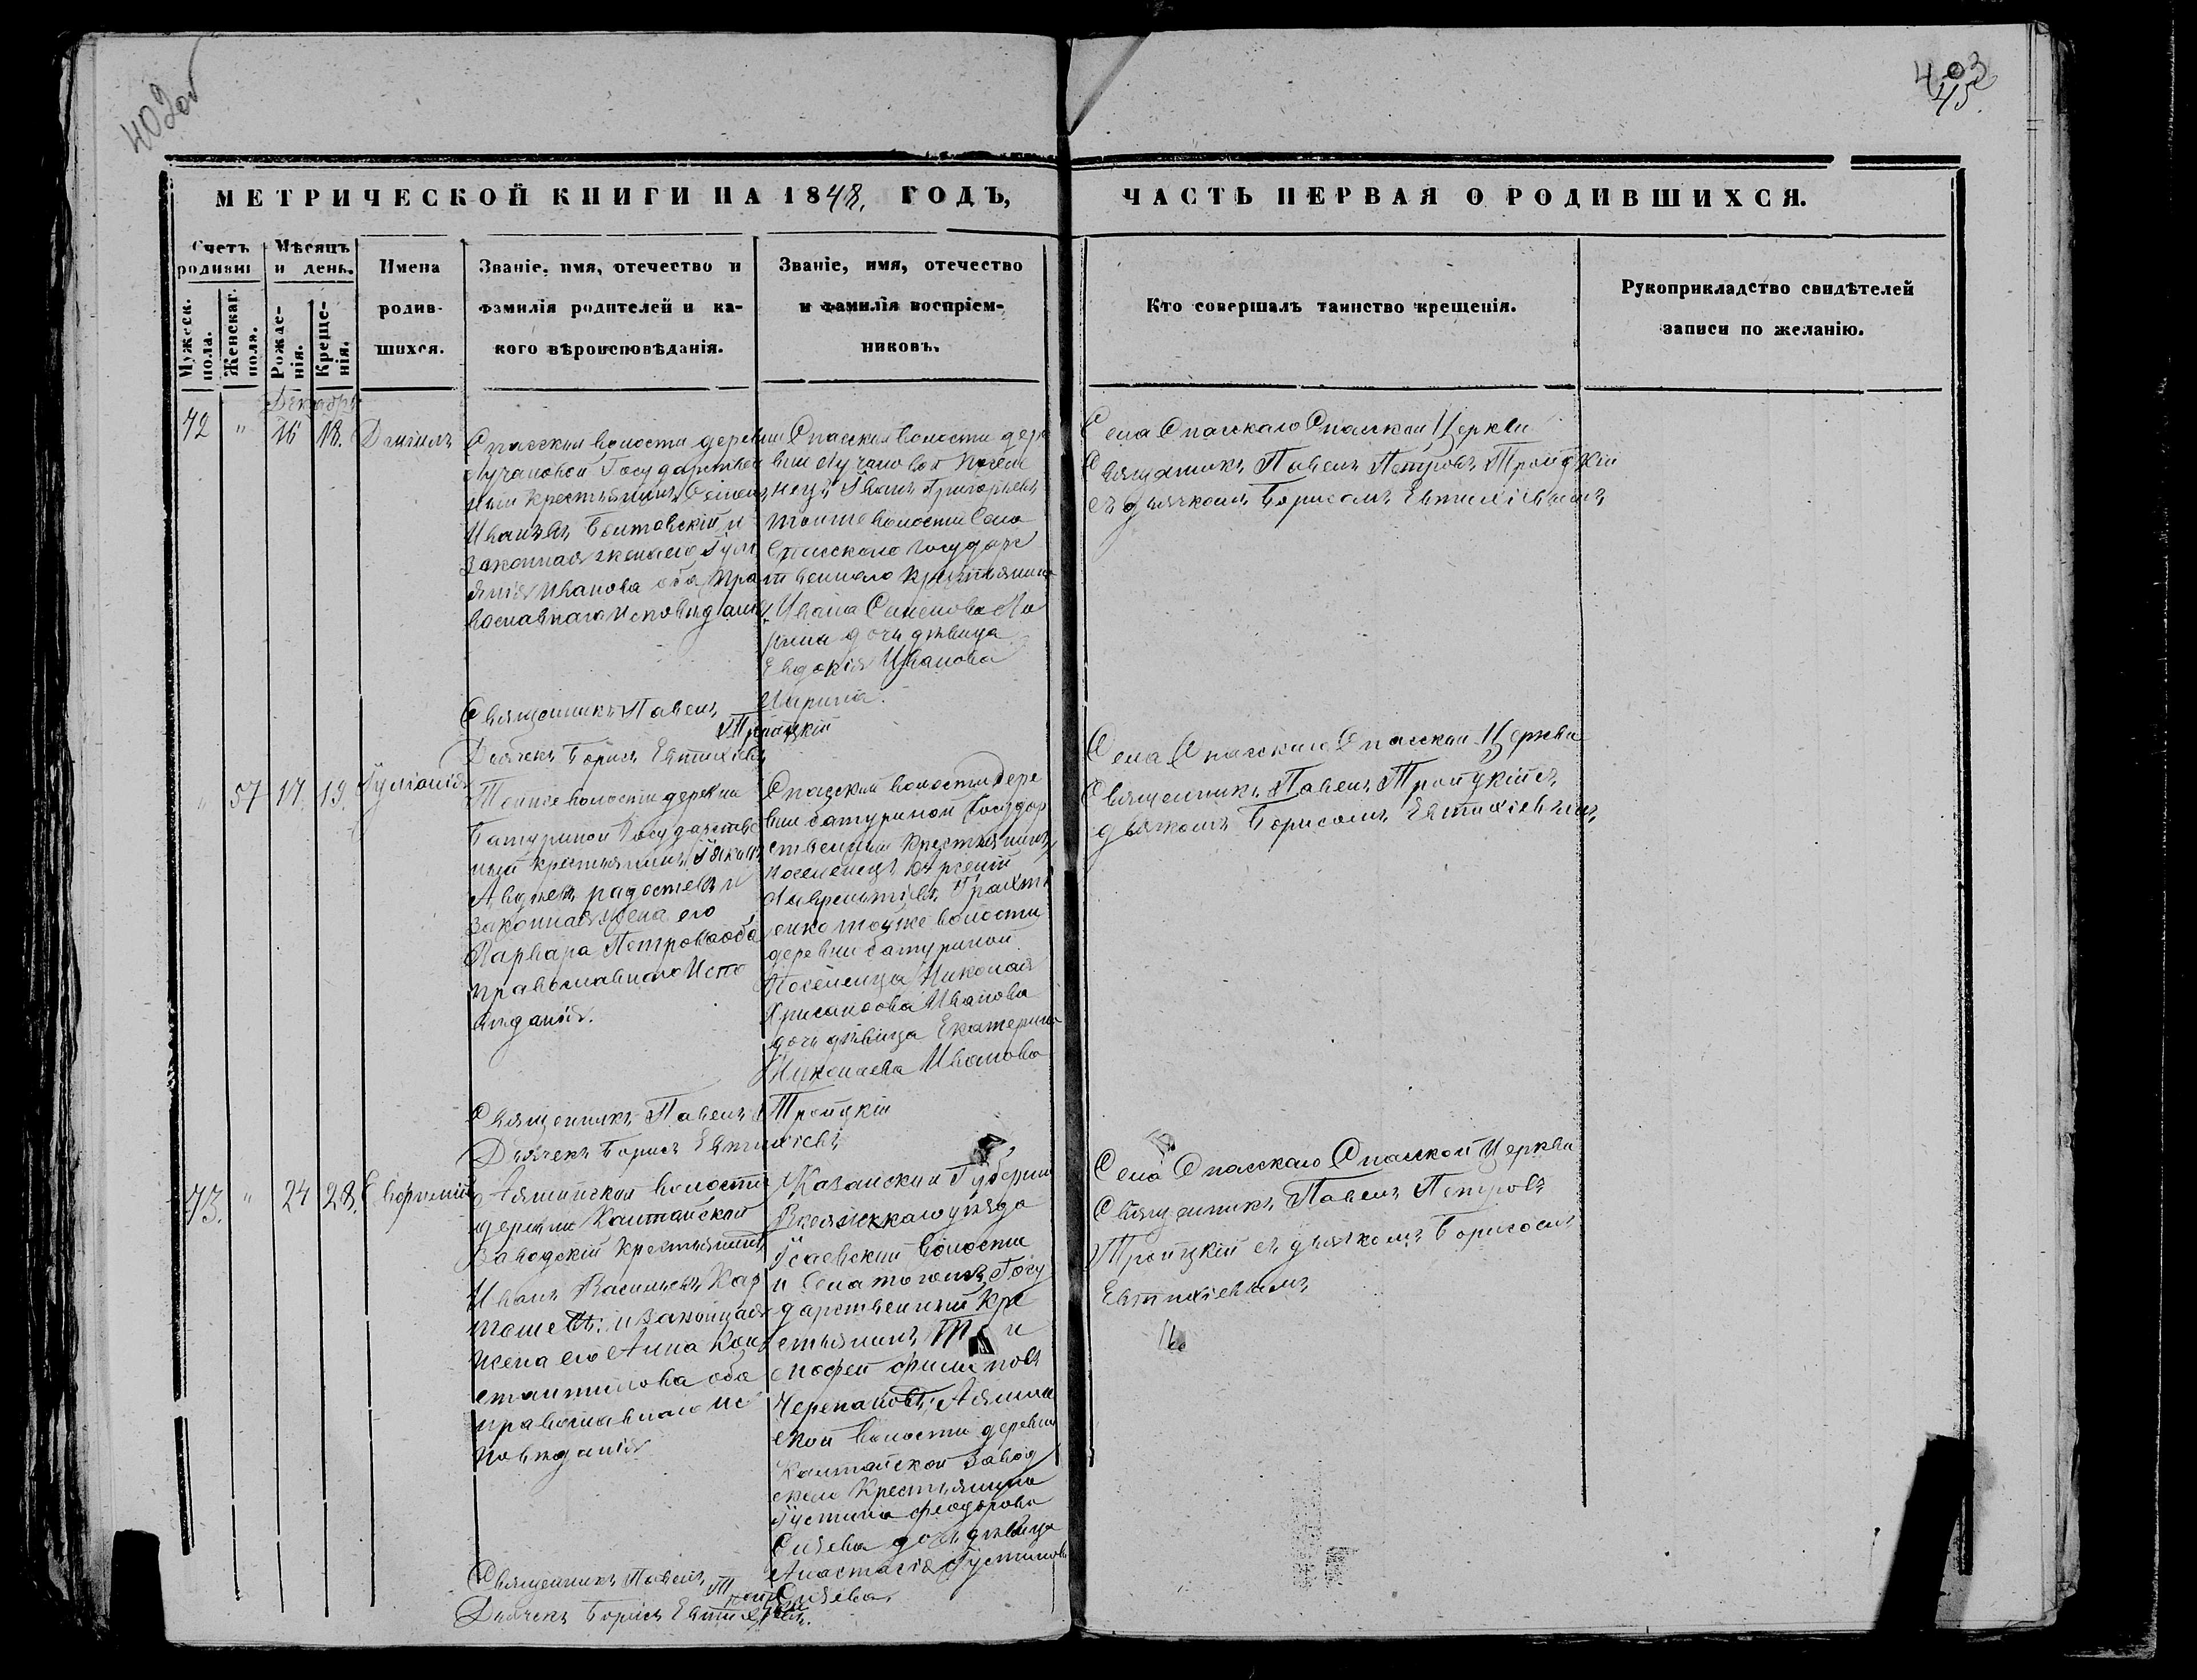 402об
403
45.
МЕТРИЧЕСКОЙ КНИГИ НА 1848. ГОДЪ,
ЧАСТЬ ПЕРВАЯ О РОДИВШИХСЯ.
Счетъ родивш
Мужеск. пола.
Женскаг. пола.
Мѣсяцъ и день.
Рожденія.
Крещенія.
Имена
родив-
шихся.
Званіе, имя, отечество и
фамилія родителей и ка-
кого вѣроисповѣданія.
Званіе, имя, отечество
и фамилія воспріем-
никовъ.
Кто совершалъ таинство крещенія.
Рукоприкладство свидѣтелей
записи по желанію.
Декабрь
72 " 16 18. Даніилъ
Спасской волости деревни
Лучановой Государствен
ный крестьянинъ Семенъ
Ивановъ и
законная жена его Іул
янія Иванова оба пра
вославнаго исповѣданія
Священникъ Павелъ
Троицкій
Дьячекъ Борисъ Евтихіевъ
Спасской волости дере
вни Лучановой посел
нецъ Иванъ Григорьевъ
тойже волости села
Спасскаго государс
твеннаго крестьянина
Ивана Семенова Ла
рина дочь дѣвица
Евдокія Иванова
Ларина.
Села Спасскаго Спасской Церкви
Священникъ Павелъ Петровъ Троицкій
съ дьячкомъ Борисомъ Евтихіевымъ
" 57 17 19. Іуліанія
Тойже волости деревни
Батуриной Государстве
ный крестьянинъ
законная жена его
Варвара Петрова оба
православнаго Испо
вѣданія.
Священникъ Павелъ Троицкій
Дьячекъ Борисъ Евтихіевъ
Спасской волости Дере
вни Батуриной Государ
ственный крестьянинъ
поселенецъ
Лаврентіевъ
енко тойже волости
деревни Батуриной
Поселенца Николая
Хрисанѳова Иванова
дочь дѣвица Екатерина
Николаева Иванова
Села Спасскаго Спасской Церкви
Священникъ Павелъ Троицкій съ
дьячкомъ Борисомъ Евтихіевымъ
73. " 24 28. Евфимій
деревни Калтайской
Заводскій крестьянинъ
Иванъ Васильевъ Кар
ташевъ: и законная
жена его Анна Кон
стантинова оба
православнаго ис
повѣданія
Священникъ Павелъ
Троицкій
Дьячекъ Борисъ Евтихіевъ.
Казанской Губерніи
уѣзда
волости
и села тогожъ Госу
дарственный кре
стьянинъ Ти
моѳей Филиповъ
Черепановъ;
ской волости деревни
Калтайской Завод
скаго Крестьянина
Іустина Феодорова
Сизева дочь дѣвица
Анастасія Іустинова
Сизева
Села Спасскаго Спасской Церкви
Священникъ Павелъ Петровъ
Троицкій съ дьячкомъ Борисомъ
Евтихіевымъ